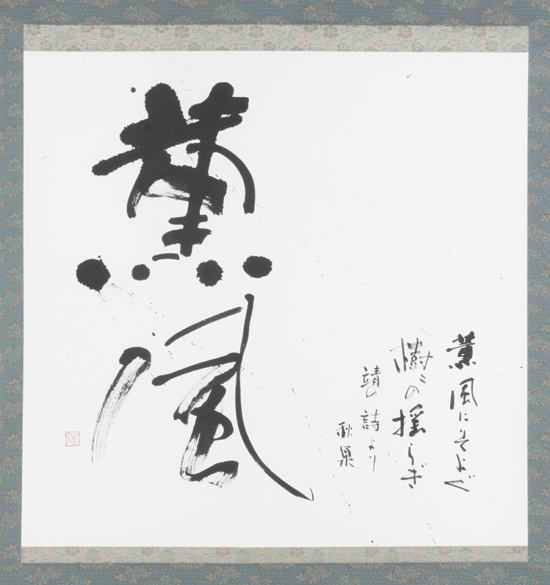 薫風
薫風にそよぐ
樹々の揺らぎ
靖の詩より
秋果